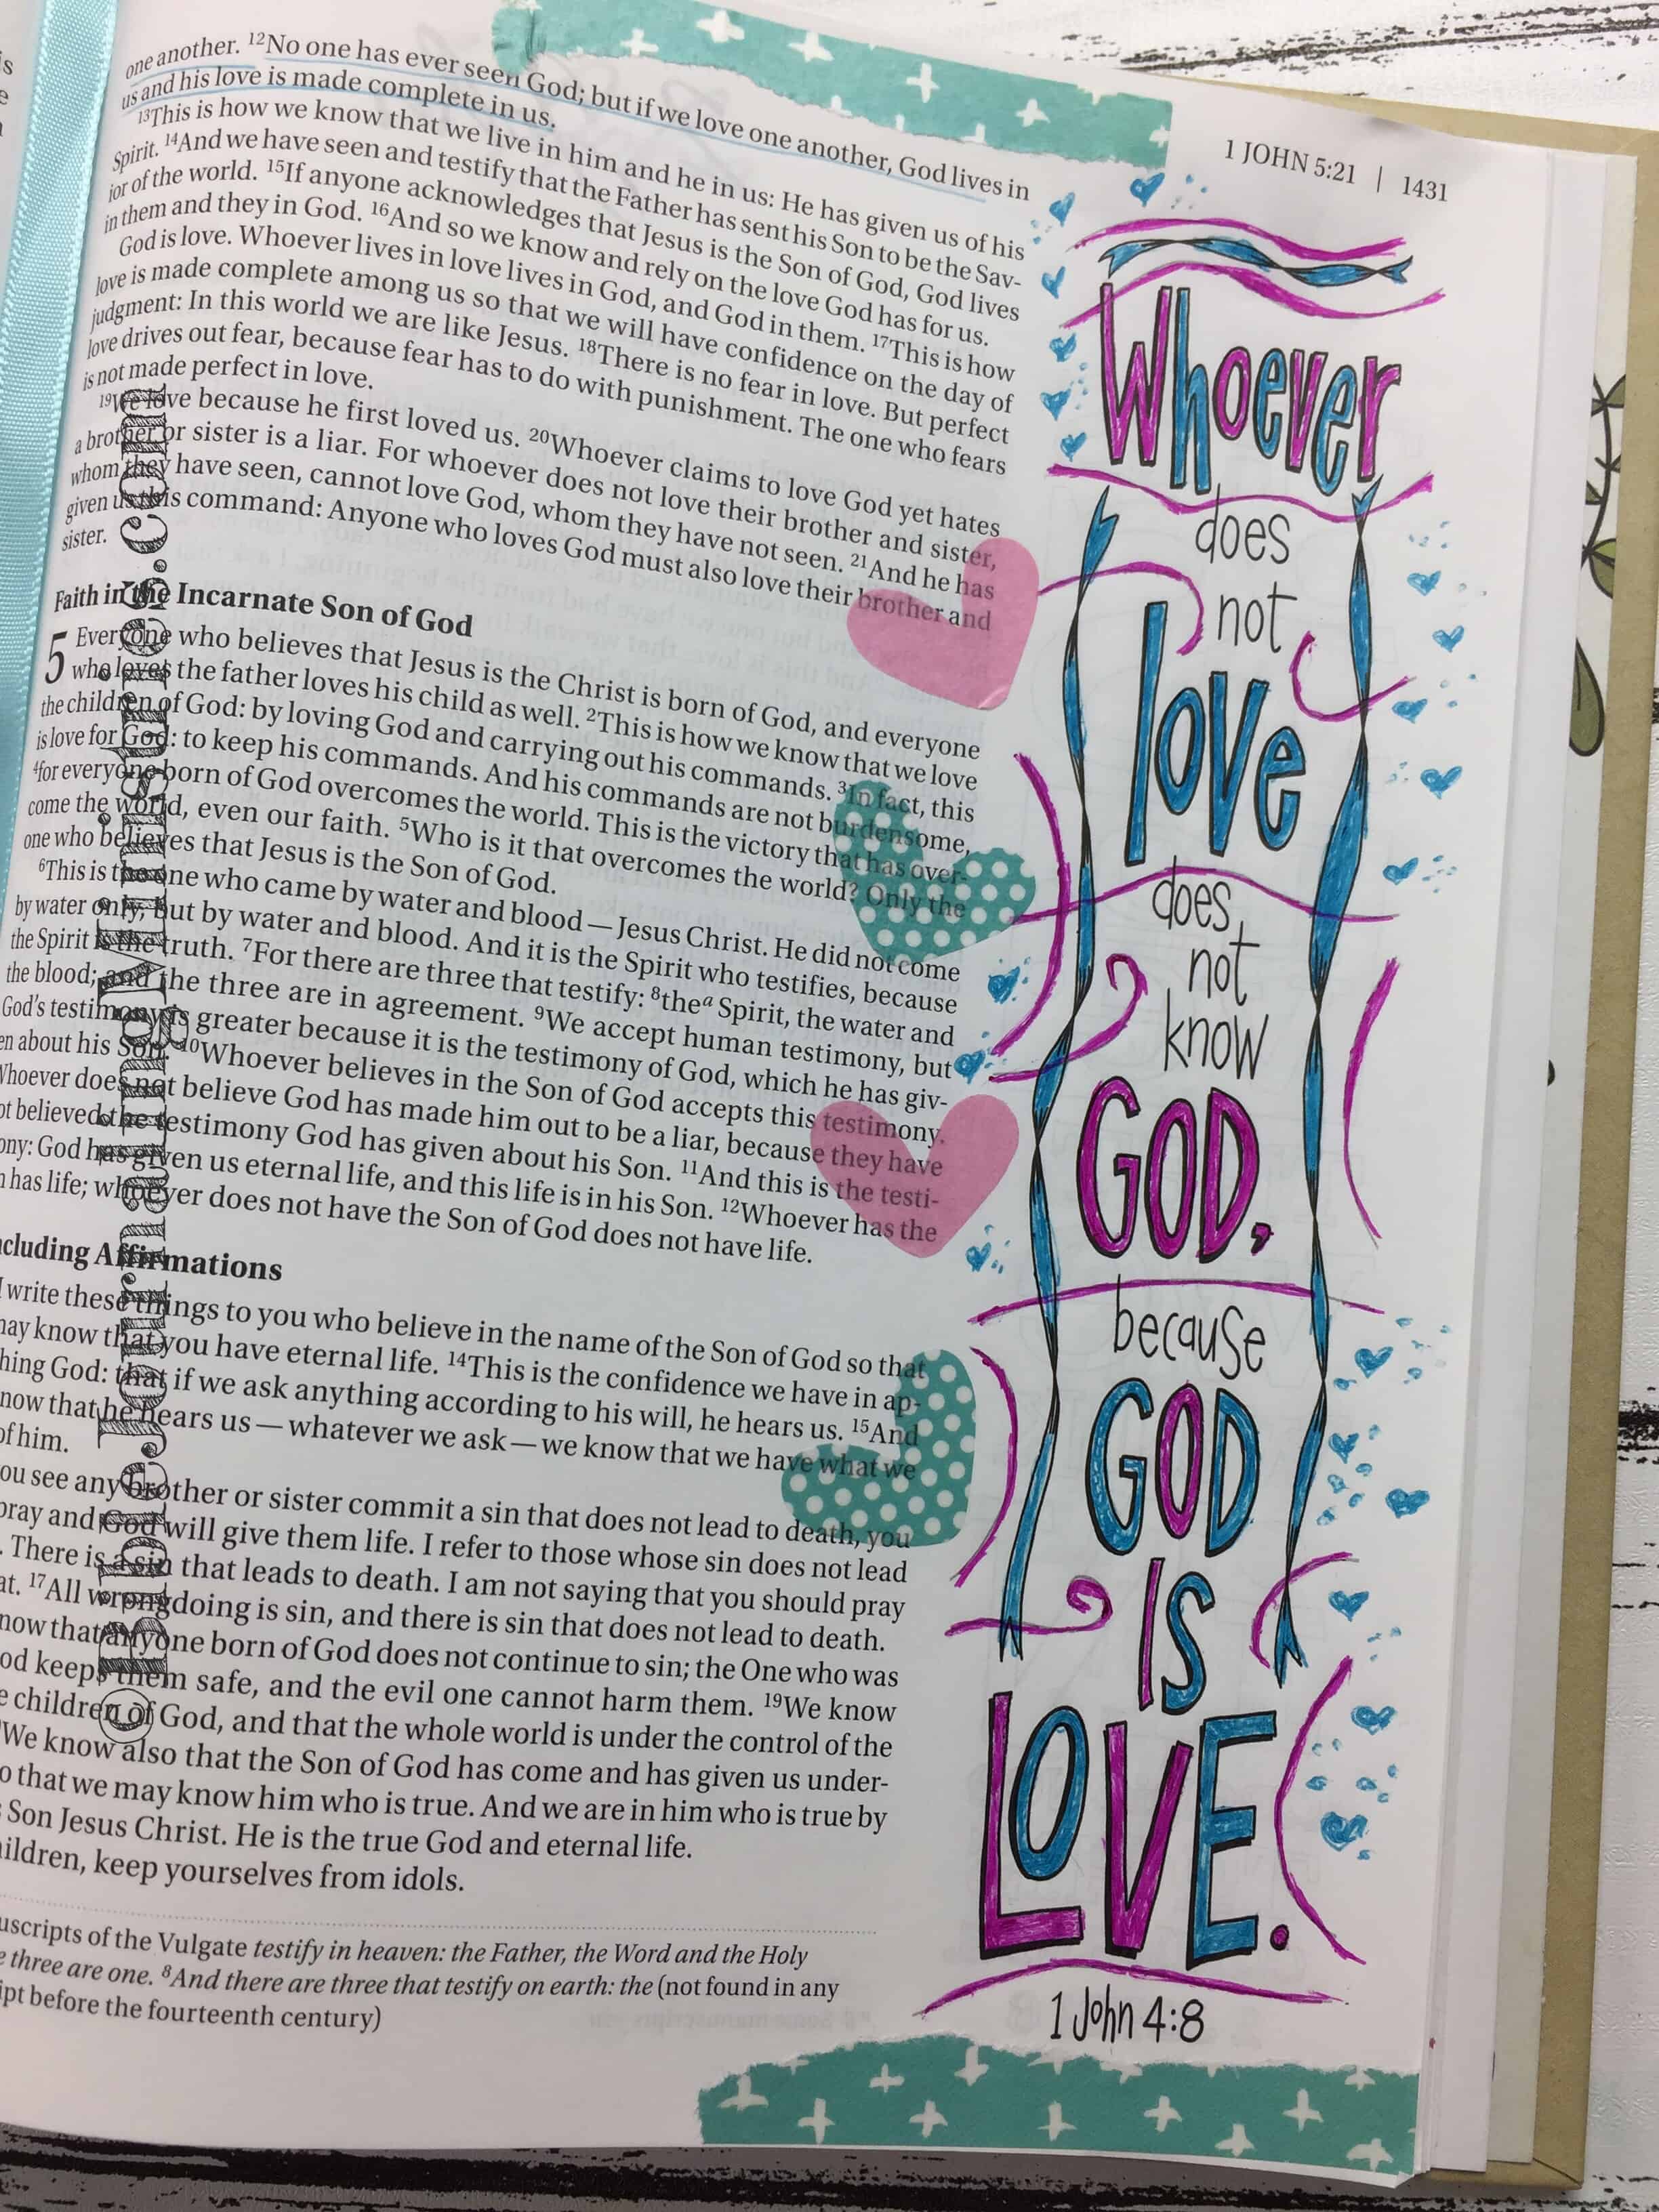 one another. ¹²No one has ever seen God; but if we love one another, God lives in
us and his love is made complete in us.
¹³This is how we know that we live in him and he in us: He has given us of his
Spirit. ¹⁴And we have seen and testify that the Father has sent his Son to be the Sav-
ior of the world. ¹⁵If anyone acknowledges that Jesus is the Son of God, God lives
in them and they in God. ¹⁶And so we know and rely on the love God has for us.
God is love. Whoever lives in love lives in God, and God in them. ¹⁷This is how
love is made complete among us so that we will have confidence on the day of
judgment: In this world we are like Jesus. ¹⁸There is no fear in love. But perfect
love drives out fear, because fear has to do with punishment. The one who fears
is not made perfect in love.
¹⁹We love because he first loved us. ²⁰Whoever claims to love God yet hates
a brother or sister is a liar. For whoever does not love their brother and sister,
whom they have seen, cannot love God, whom they have not seen. ²¹And he has
given us this command: Anyone who loves God must also love their brother and
sister.
Faith in the Incarnate Son of God
5 Everyone who believes that Jesus is the Christ is born of God, and everyone
who loves the father loves his child as well. ²This is how we know that we love
the children of God: by loving God and carrying out his commands. ³In fact, this
is love for God: to keep his commands. And his commands are not burdensome,
⁴for everyone born of God overcomes the world. This is the victory that has over-
come the world, even our faith. ⁵Who is it that overcomes the world? Only the
one who believes that Jesus is the Son of God.
⁶This is the one who came by water and blood — Jesus Christ. He did not come
by water only, but by water and blood. And it is the Spirit who testifies, because
the Spirit is the truth. ⁷For there are three that testify: ⁸theᵃ Spirit, the water and
the blood; and the three are in agreement. ⁹We accept human testimony, but
God's testimony is greater because it is the testimony of God, which he has giv-
en about his Son. ¹⁰Whoever believes in the Son of God accepts this testimony.
Whoever does not believe God has made him out to be a liar, because they have
ot believed the testimony God has given about his Son. ¹¹And this is the testi-
ony: God has given us eternal life, and this life is in his Son. ¹²Whoever has the
n has life; whoever does not have the Son of God does not have life.
cluding Affirmations
I write these things to you who believe in the name of the Son of God so that
may know that you have eternal life. ¹⁴This is the confidence we have in ap-
hing God: that if we ask anything according to his will, he hears us. ¹⁵And
now that he hears us — whatever we ask — we know that we have what we
of him.
ou see any brother or sister commit a sin that does not lead to death, you
pray and God will give them life. I refer to those whose sin does not lead
. There is a sin that leads to death. I am not saying that you should pray
at. ¹⁷All wrongdoing is sin, and there is sin that does not lead to death.
now that anyone born of God does not continue to sin; the One who was
od keeps them safe, and the evil one cannot harm them. ¹⁹We know
e children of God, and that the whole world is under the control of the
We know also that the Son of God has come and has given us under-
o that we may know him who is true. And we are in him who is true by
Son Jesus Christ. He is the true God and eternal life.
ildren, keep yourselves from idols.
uscripts of the Vulgate testify in heaven: the Father, the Word and the Holy
e three are one. ⁸And there are three that testify on earth: the (not found in any
ipt before the fourteenth century)
1 JOHN 5:21 | 1431
Whoever
does
not
love
does
not
know
GOD,
because
GOD
IS
LOVE.
1 John 4:8